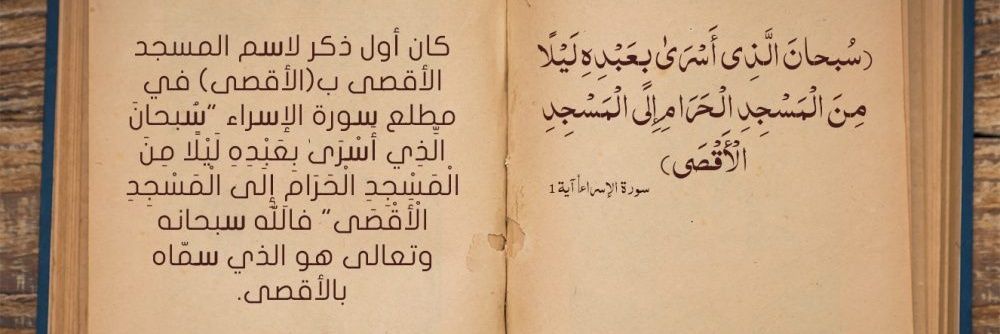 (سُبحانَ الَّذِي أَسْرَىٰ بِعَبْدِهِ لَيْلًا
مِنَ الْمَسْجِدِ الْحَرَامِ إِلَى الْمَسْجِدِ
الْأَقْصَى)
سورة الإسراء آية 1
كان أول ذكر لاسم المسجد
الأقصى ب(الأقصى) في
مطلع سورة الإسراء "سُبحانَ
الَّذِي أَسْرَىٰ بِعَبْدِهِ لَيْلًا مِنَ
الْمَسْجِدِ الْحَرَامِ إِلَى الْمَسْجِدِ
الْأَقْصَى" فالله سبحانه
وتعالى هو الذي سمّاه
بالأقصى.